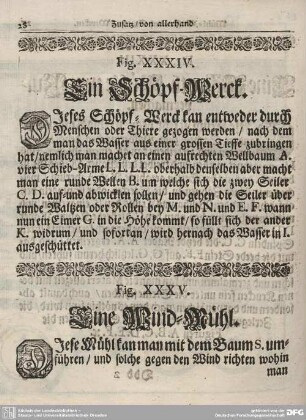 28
Zusatz/ von allerhand
Fig. XXXIV.
Ein Schöpf-Werck.
DIeses Schöpf-Werck kan entweder durch
Menschen oder Thiere gezogen werden/ nach dem
man das Wasser aus einer grossen Tieffe zubringen
hat/ nemlich man macht an einen aufrechten Wellbaum A.
vier Schieb-Arme L. L. L. L. oberhalb denselben aber macht
man eine runde Wellen B. um welche sich die zwey Seiler
C. D. auf- und abwicklen sollen/ und gehen die Seiler über
runde Waltzen oder Rollen bey M. und N. und E. F. wann
nun ein Eimer G. in die Höhe kommt/ so füllt sich der ander
K. widrum/ und sofortan/ wird hernach das Wasser in I.
ausgeschüttet.
Fig. XXXV.
Eine Wind-Mühl.
DIese Mühl kan man mit dem Baum S. um-
führen/ und solche gegen den Wind richten wohin
man